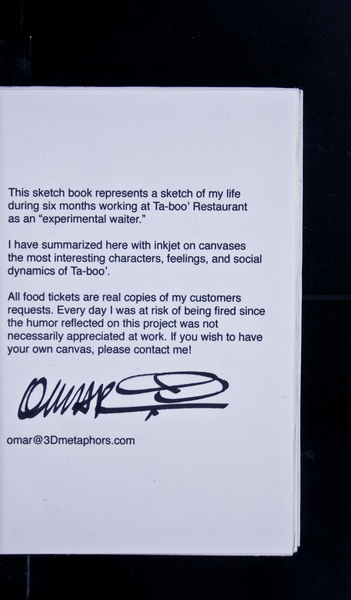 This sketch book represents a sketch of my life
during six months working at Ta-boo' Restaurant
as an “experimental waiter.”
I have summarized here with inkjet on canvases
the most interesting characters, feelings, and social
dynamics of Ta-boo'.
All food tickets are real copies of my customers
requests. Every day I was at risk of being fired since
the humor reflected on this project was not
necessarily appreciated at work. If you wish to have
your own canvas, please contact me!
OMAR
omar@3Dmetaphors.com